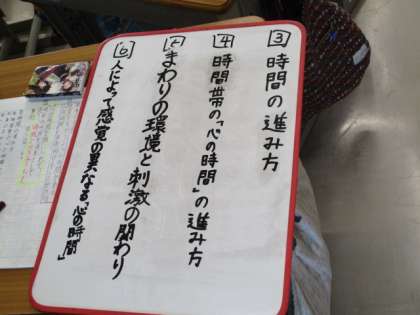 [3] 時間の進み方
[4] 時間帯の「心の時間」の進み方
[5] まわりの環境と刺激の関わり
[6] 人によって感覚の異なる「心の時間」